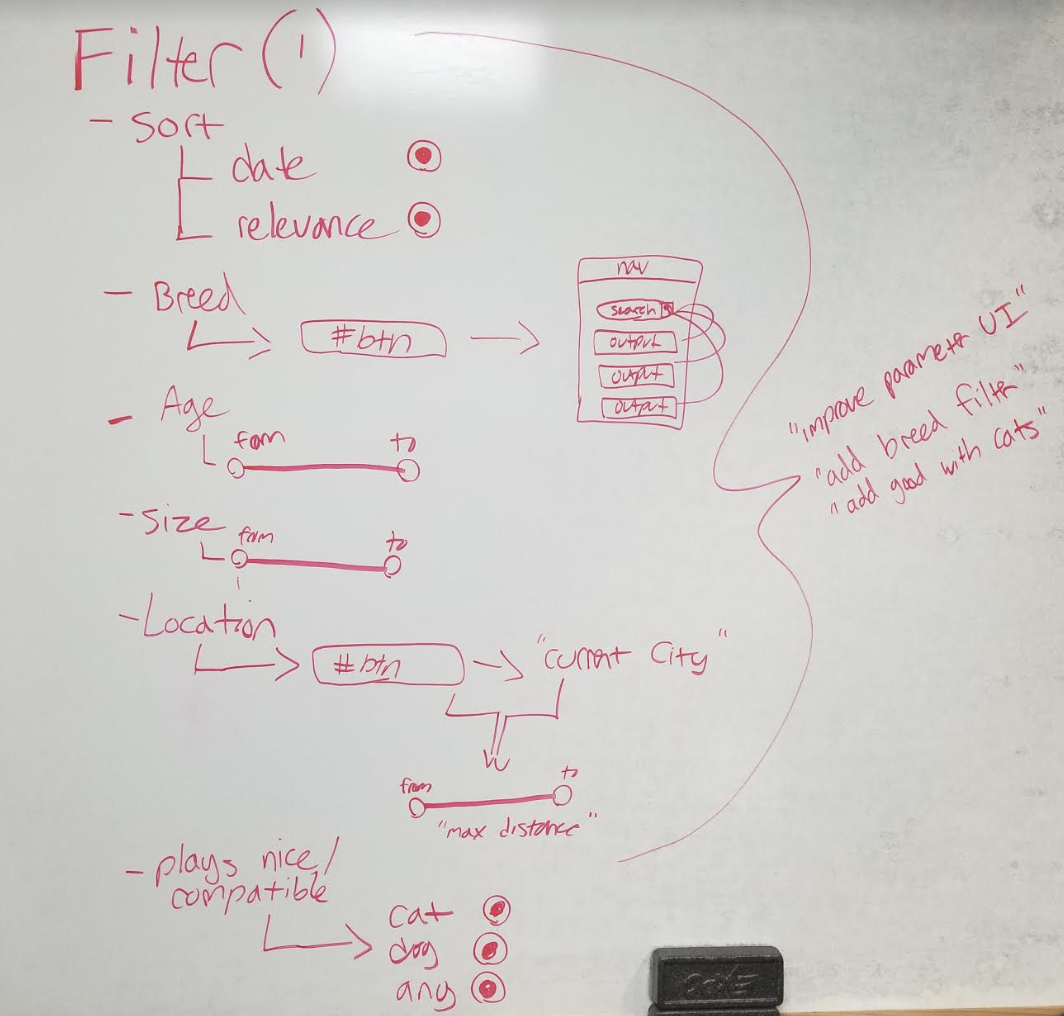 Filter (1)
- sort
date
relevance
- Breed
#btn
nav
search
output
output
output
- Age
from
to
- Size
from
to
- Location
#btn
"current City"
from
to
"max distance"
- plays nice/
compatible
cat
dog
any
"improve parameter UI"
"add breed filter"
"add good with cats"